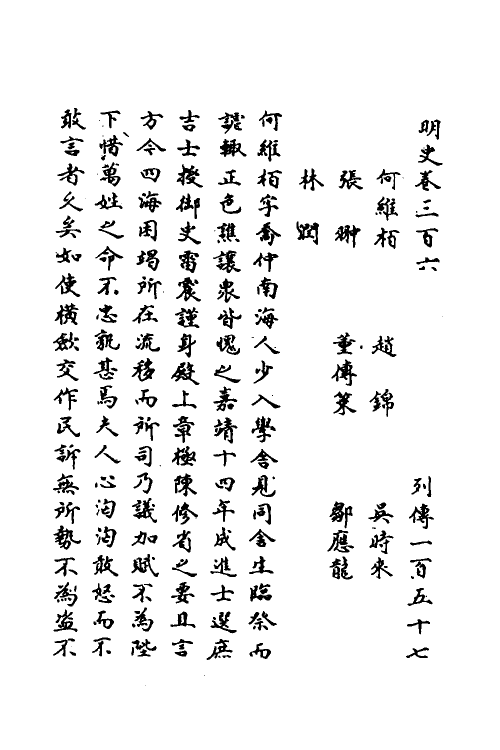 明史卷三百六　列傳一百五十七
何維栢　趙錦　吳時來
張翀　董傳策　鄒應龍
林潤
何維栢字喬仲南海人少入學舍見同舍生臨祭而
謔輒正色譙讓衆皆愧之嘉靖十四年成進士選庶
吉士授御史雷震謹身殿上章極陳修省之要且言
方今四海困竭所在流移而所司乃議加賦不為陛
下惜萬姓之命不忠孰甚焉夫人心洶洶敢怒而不
敢言者久矣如使橫歛交作民訴無所勢不為盜不